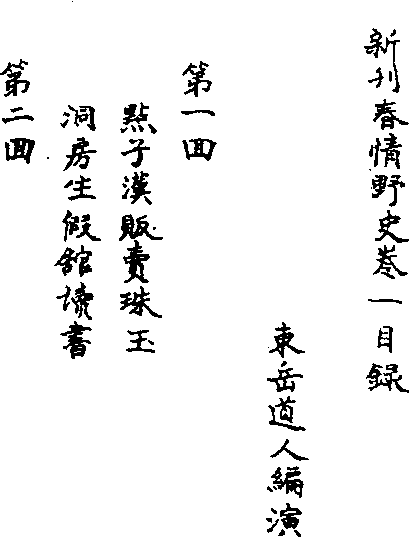 新刊春情野史卷一目録
東岳道人編演
第一回
㸃子漢販賣珠玉
洞房生假館讀書
第二回